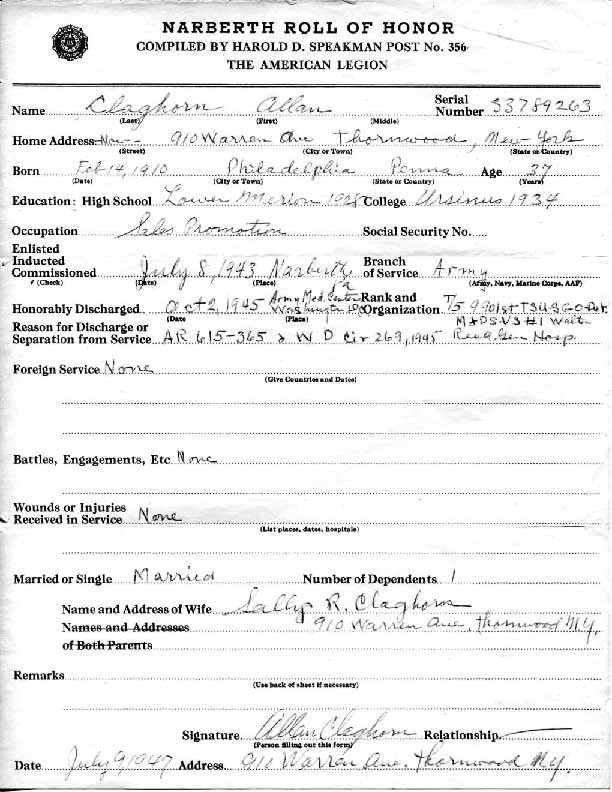 NARBERTH ROLL OF HONOR
COMPILED BY HAROLD D. SPEAKMAN POST No. 356
THE AMERICAN LEGION
Name Claghorn Allan Serial Number 33789263
(Last) (First) (Middle)
Home Address Now 910 Warren Ave Thornwood, New York
(Street) (City or Town) (State or Country)
Born Feb 14, 1910 Philadelphia Penna Age 37
(Date) (City or Town) (State or Country) (Years)
Education: High School Lower Merion 1928 College Ursinus 1934
Occupation Sales Promotion Social Security No.
Enlisted
Inducted
Commissioned July 8, 1943 Narberth Pa Branch of Service Army
(Check) (Date) (Place) (Army, Navy, Marine Corps, AAF)
Honorably Discharged Oct 2, 1945 Army Med. Center Washington DC Rank and Organization T/5 9901st TSU SGO Det.
(Date (Place) M&DS-VS#1 Walt
Reason for Discharge or
Separation from Service AR 615-365 & WD Cir 269, 1945 Reed Gen Hosp.
Foreign Service None
(Give Countries and Dates)
Battles, Engagements, Etc None
Wounds or Injuries
Received in Service None
(List places, dates, hospitals)
Married or Single Married Number of Dependents 1
Name and Address of Wife Sally R. Claghorn
Names and Addresses 910 Warren Ave. Thornwood N.Y.
of Both Parents
Remarks
(Use back of sheet if necessary)
Signature Allan Claghorn Relationship
(Person filling out this form)
Date July 9, 1947 Address 910 Warren Ave. Thornwood N.Y.